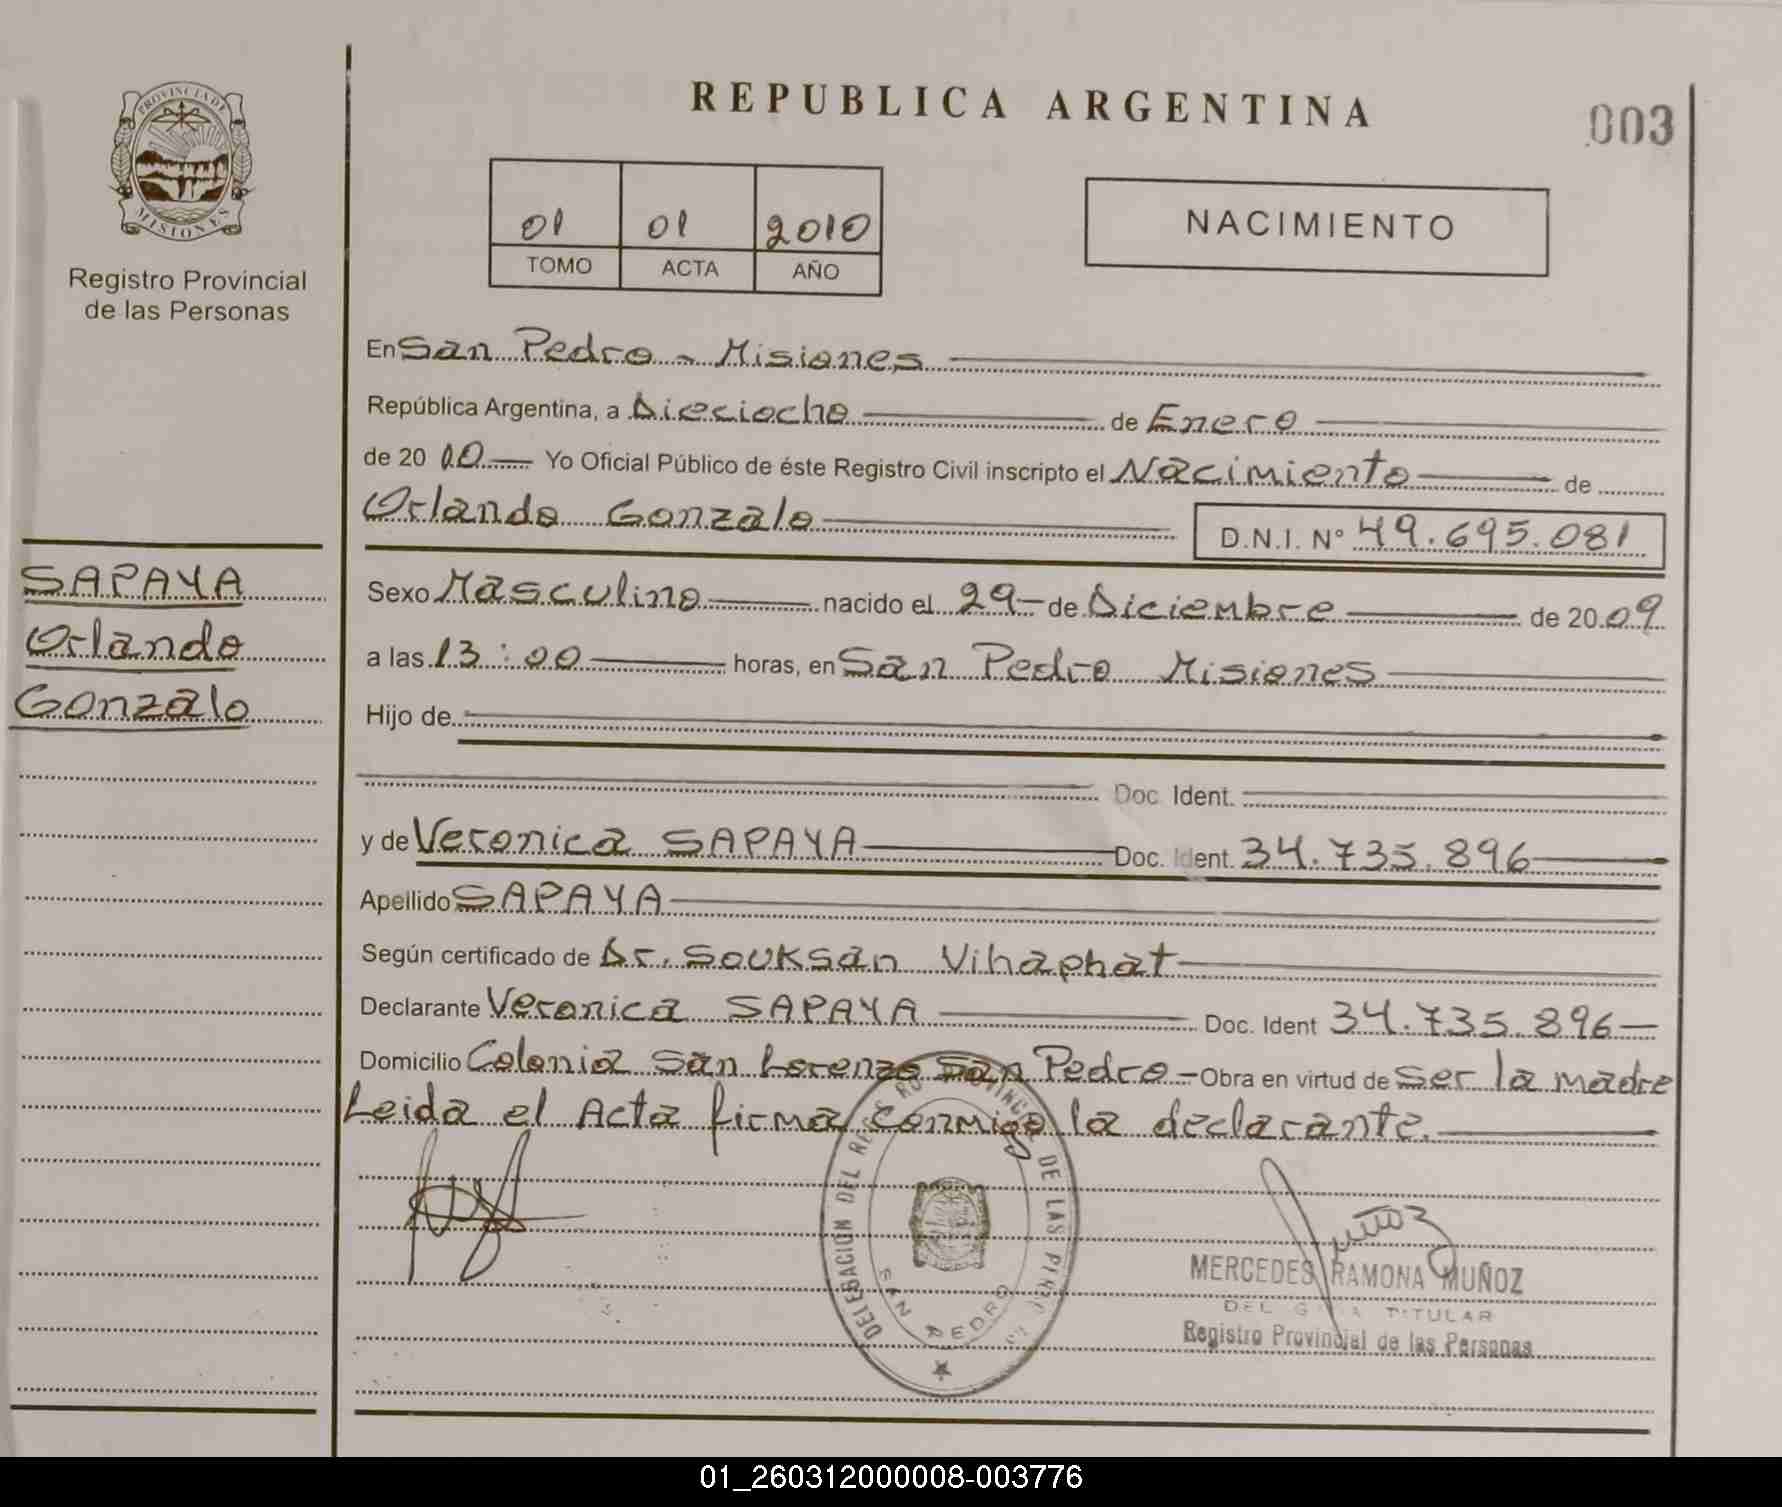 REPUBLICA ARGENTINA
003
PROVINCIA DE
MISIONES
Registro Provincial
de las Personas
01 01 2010
TOMO ACTA AÑO
NACIMIENTO
En San Pedro - Misiones
República Argentina, a Dieciocho de Enero
de 20 10 Yo Oficial Público de éste Registro Civil inscripto el Nacimiento de
Orlando Gonzalo
D.N.I. Nº 49.695.081
SAPAYA
Orlando
Gonzalo
Sexo Masculino nacido el 29 de Diciembre de 20 09
a las 13:00 horas, en San Pedro Misiones
Hijo de
Doc. Ident.
y de Veronica SAPAYA Doc. Ident. 34.735.896
Apellido SAPAYA
Según certificado de Dr. Souksan Vihaphat
Declarante Veronica SAPAYA Doc. Ident 34.735.896
Domicilio Colonia San Lorenzo San Pedro - Obra en virtud de Ser la madre
Leida el Acta firma conmigo la declarante.
DELEGACIÓN DEL DE LAS
SAN PEDRO
Muñoz
MERCEDES RAMONA MUÑOZ
TITULAR
Registro Provincial de las Personas
01_260312000008-003776